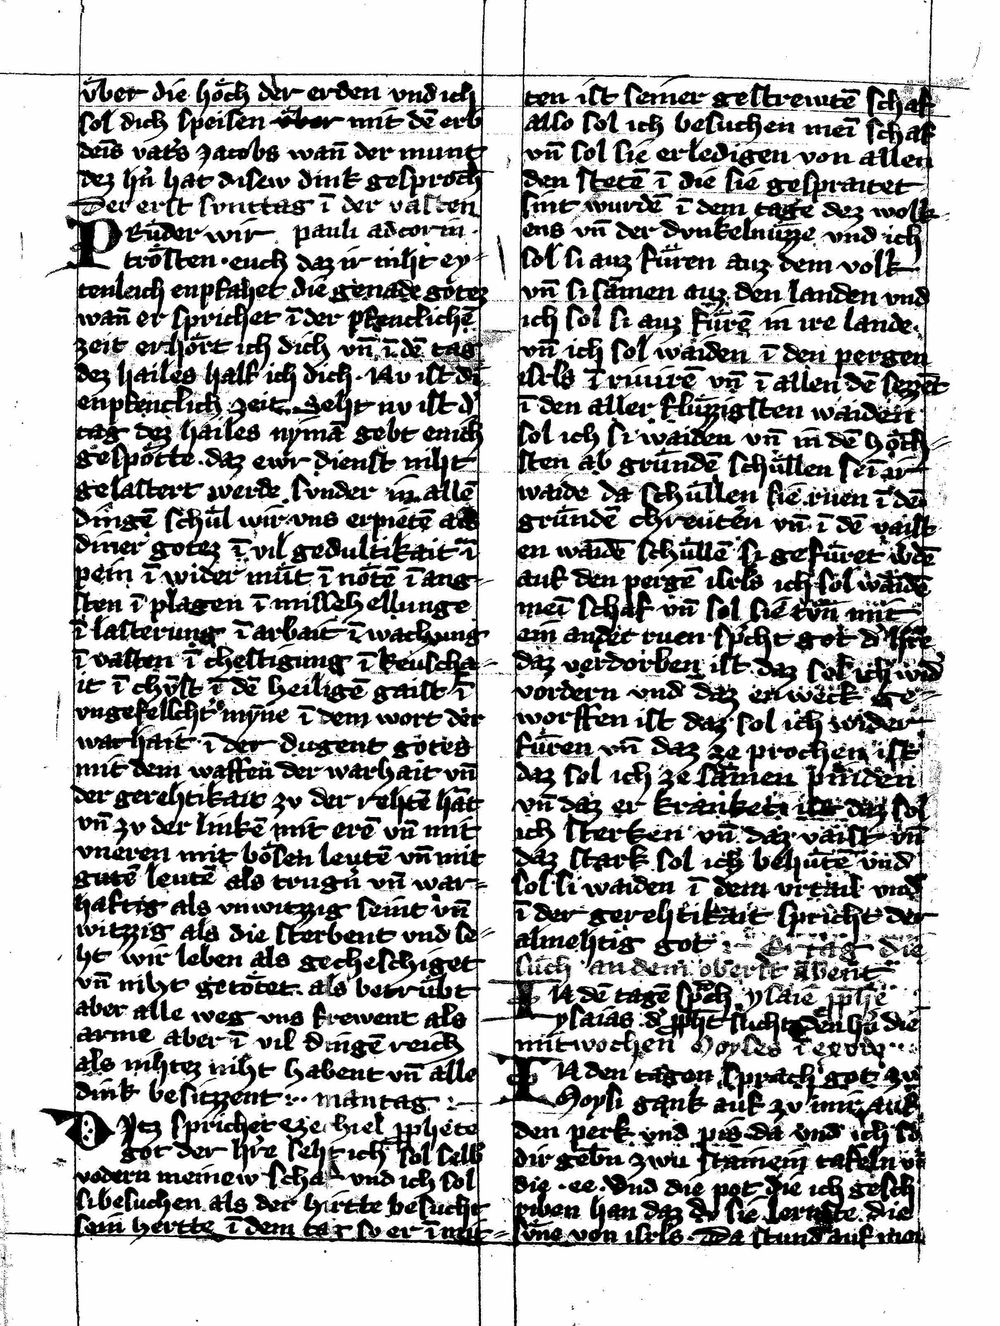 v̈ber die hoͤch der erden vnd ich
sol dich speisen v̈ber mit dē erb
deīs vat's Jacobs wañ der munt
dez hr̄n hat disew dink gesproch̄
Der erst svnttag ī der vasten
PRüder wir pauli ad corin
trosten · euch daz ir niht ey
tenleich enpfahet die genade gotez
wañ er sprichet ī der pfenclichē
zeit erhört ich dich vn̄ ī dē tag
dez hailes half ich dich · Nv ist di
enpfenclich zeit · Seht nv ist d'
tag dez hailes nymā gebt euich
gespötte · daz ewr dienst niht
gelastert werde svnder in allē
dingē schül wir vns erpietē als
diner gotez ī vil gedultikait ī
pein ī wider müt ī nötē ī ang=
sten ī plagen ī misshellunge
ī lasterung ī arbait ī wachung
ī vasten ī chestigung ī keuscha=
it ī chvͤst ī dē heiligē gaist ī
vngefelscht' myne ī dem wort der
warhait ī der dugent gotes
mit dem waffen der warhait vn̄
der gerehtikait zv der rehtē hāt
vn̄ zv der linkē mit erē vn̄ mit
vneren mit bösen leutē vn̄ mit
gutē leutē als trugn̄' vn̄ war=
haftig als vnwitzzig seint vn̄
witzzig als die sterbent vnd se=
ht wir leben als gecheschiget
vn̄ niht getötet · als betrübt
aber alle weg vns frewent als
arme aber ī vil dingē reich
als nihtez niht habent vn̄ alle
dink besitzzent :· mantag :·
Ditz sprichet ezechiel ꝓphete
got der h're seht ich sol selb
vodern meinew schaf vnd ich sol
si besuchen als der hirtte besucht
sein hertte ī dem tag so er ī mit=
ten ist seiner gestrewtē schaf
also sol ich besuchen meī schaf
vn̄ sol sie erledigen von allen
den stetē ī die sie gespraitet
sint wurdē ī dem tage dez wolk=
ens vn̄ der dvnkelnüzze vnd ich
sol si auz füren auz dem volk
vn̄ si sāmen auz den landen vnd
ich sol si auz fürē in ire lande ·
vn̄ ich sol waiden ī den pergen
isrls ī rivirē vn̄ ī allen dē sezzēt
ī den aller flüzzigsten waiden
sol ich si waiden vn̄ in dē höch=
sten ab gründē schüllen sei ir
waide da schüllen sie ruen ī dē
gründē chreuten vn̄ ī dē vaist
en waidē schüllē si gefüret w'dē
auf den pergē isrls ich sol waidē
meī schaf vn̄ sol sie tvn mit
ein ander ruen spcht got d' h're
daz verdorben ist daz sol ich wid'
vordern vnd daz enweck ge=
worffen ist daz sol ich wider
füren vn̄ daz ze prochen ist
daz sol ich ze sāmen pinden
vn̄ daz er kranket ist daz sol
ich sterken vn̄ daz vaist vn̄
daz stark sol ich behütē vnd
sol si waiden ī dem vrtail vnd
ī der gerehtikait spricht der
almehtig got :· Eritag die
such an dem oberst abent
IN dē tagen sp̄ch ysaie ꝓphe
ysaias d' ꝓph̄t sucht den hn̄ die
mitwochen Moyses ī exodo ·
IN den tagen sprach got zv
Moysi gank auf zv mir auf
den perk vnd pis da vnd ich sol
dir gebn̄ zwu stainein tafeln vn̄
die · ee · vnd die pot die ich gesch
riben han daz dv sie lernste die
süne von isrls · Da stund auf moy